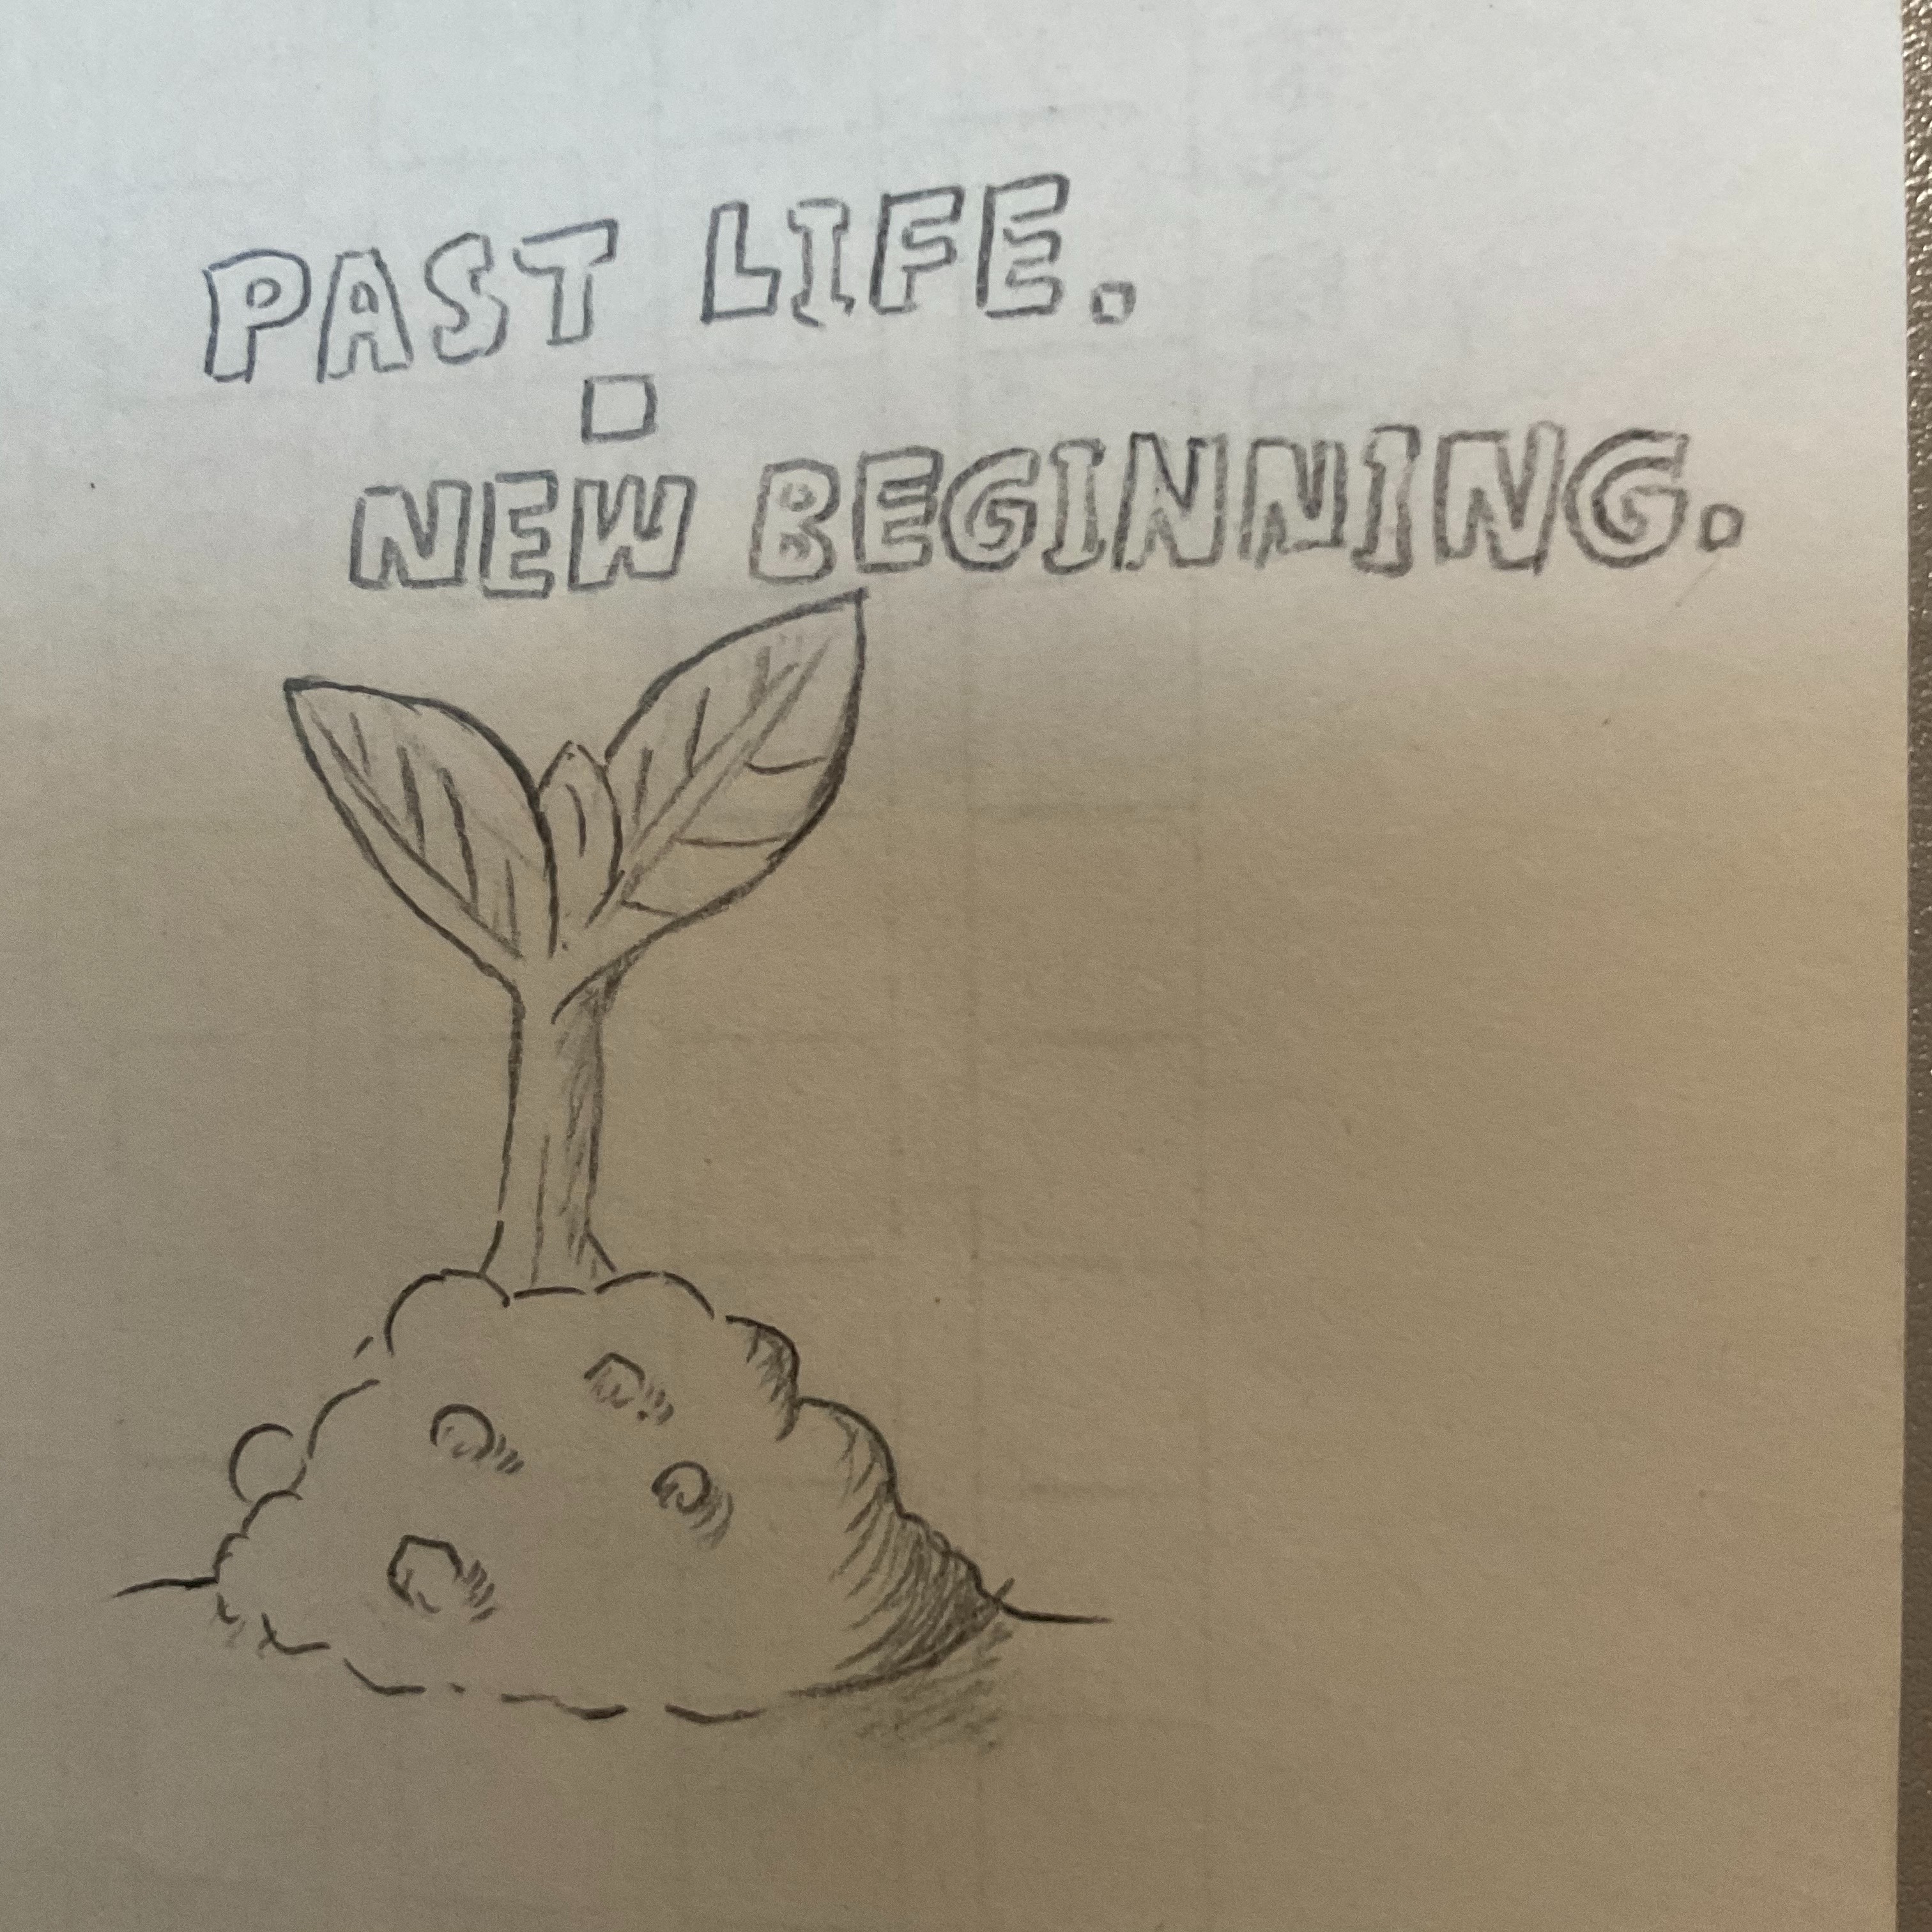 PAST LIFE.
NEW BEGINNING.